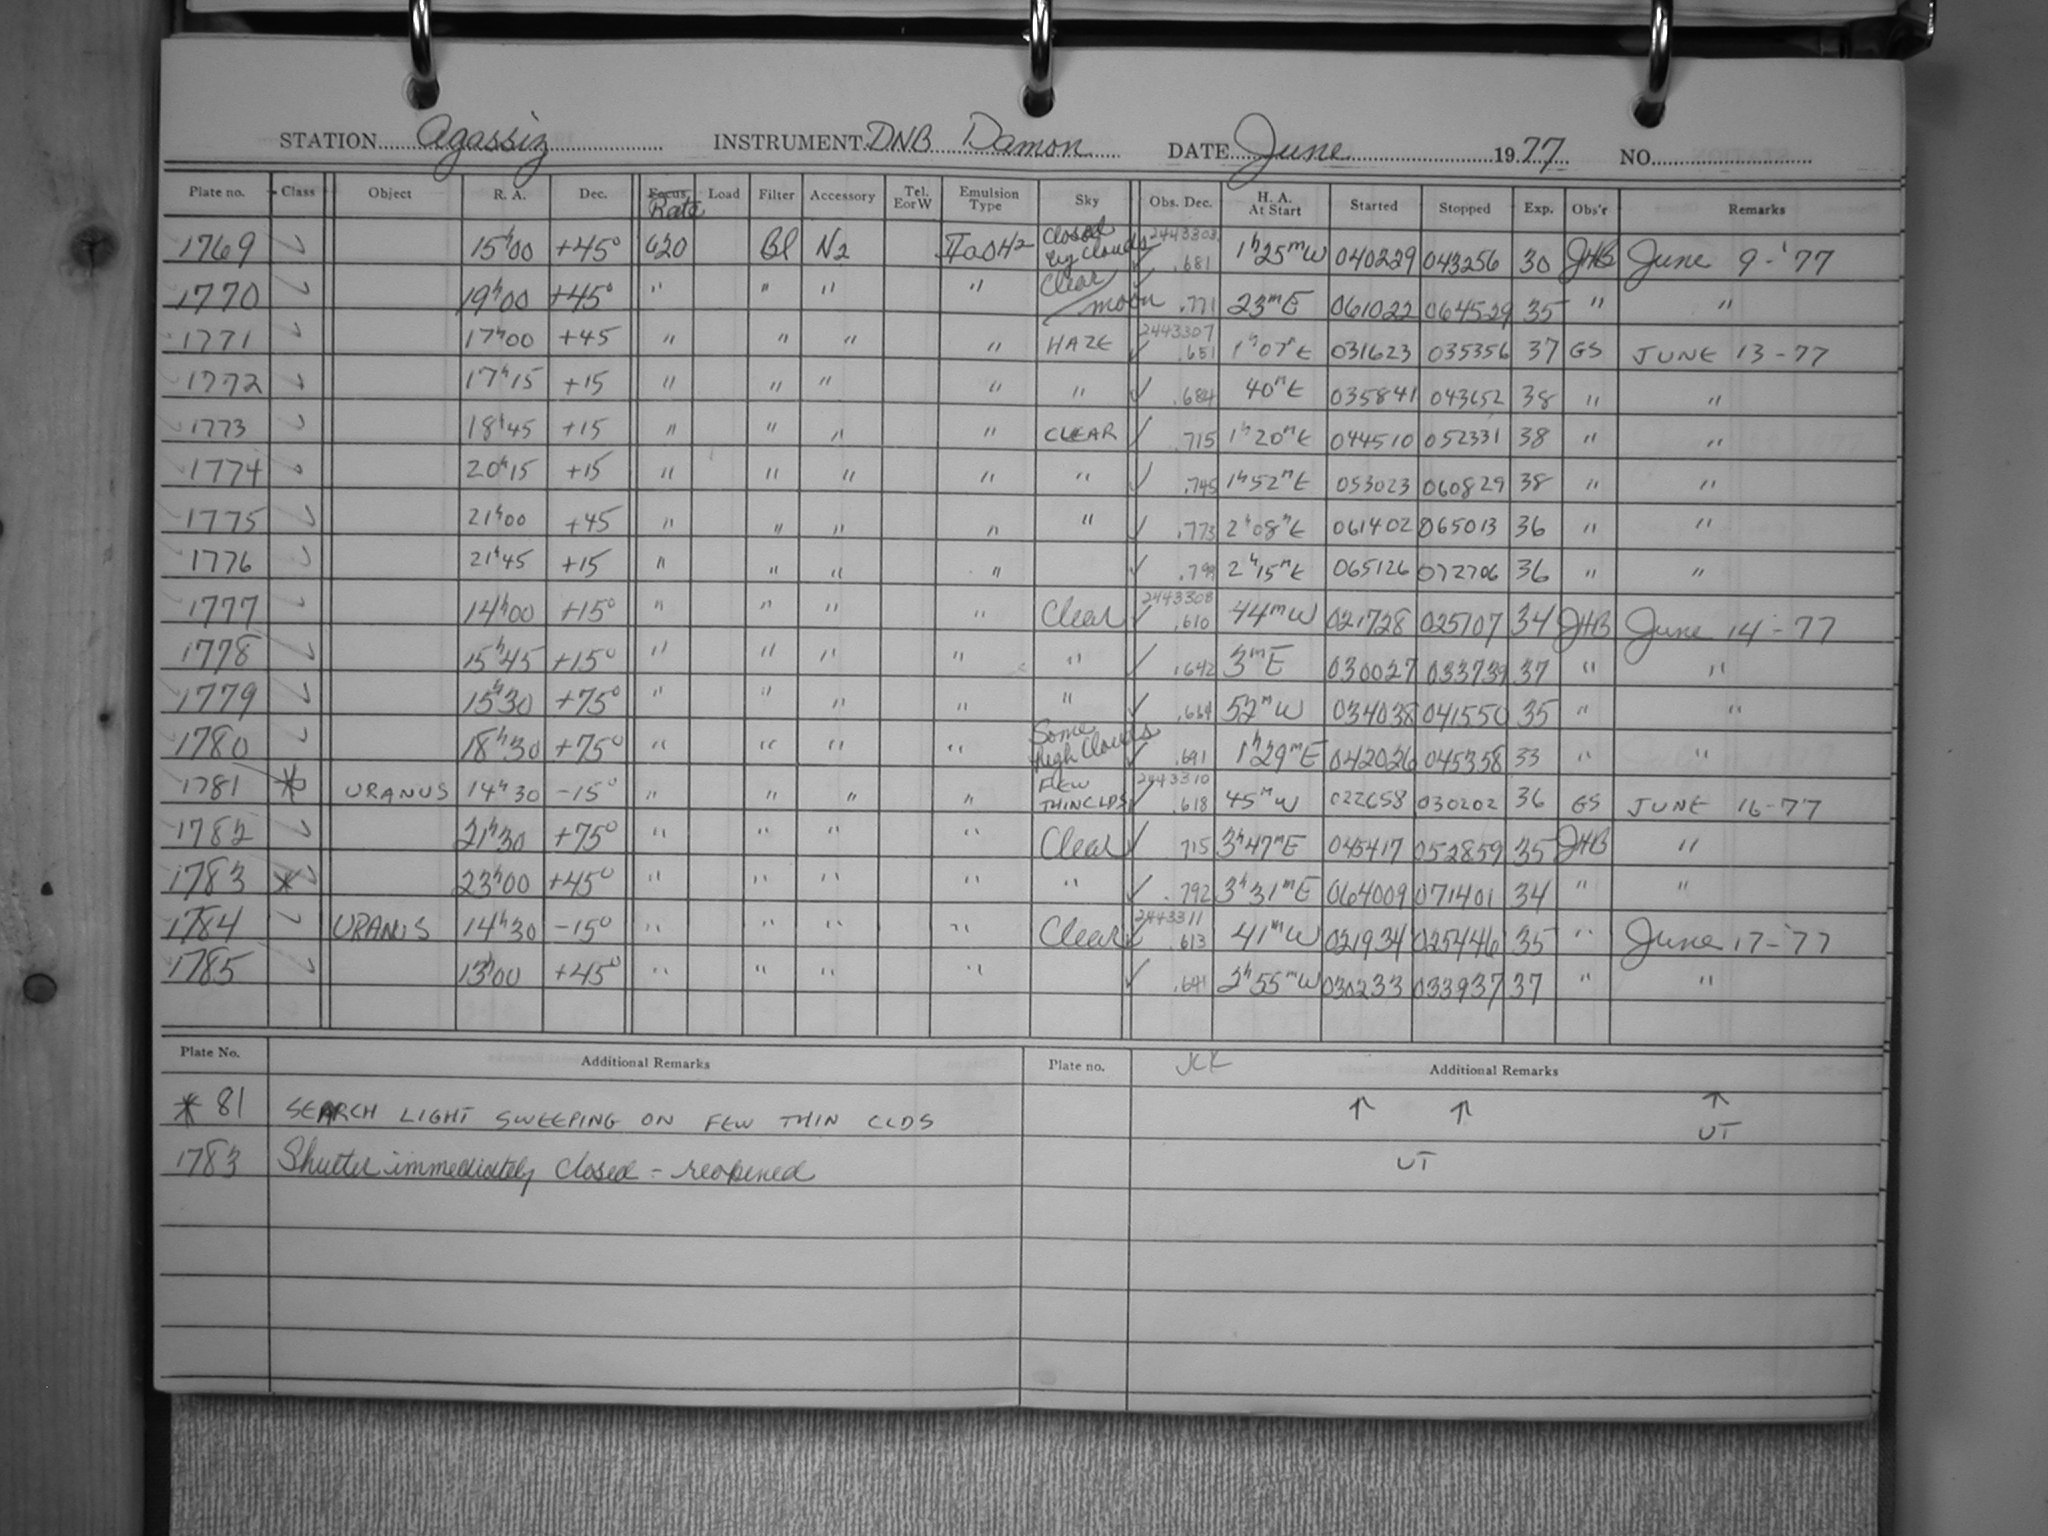 STATION Agassiz INSTRUMENT DNB Damon DATE June 1977 NO.
Plate no. Class Object R. A. Dec. Focus Rate Load Filter Accessory Tel. E or W Emulsion Type Sky Obs. Dec. H. A. At Start Started Stopped Exp. Obs'r Remarks
1769 ✓ 15h00 +45° 620 Bl N2 IIaOH2 Closed by Clouds 2443303 ✓ .681 1h25mW 040229 043256 30 JHB June 9-'77
1770 ✓ 19h00 +45° " " " " Clear/moon ✓ .771 23mE 061022 064529 35 " "
1771 ✓ 17h00 +45 " " " " HAZE 2443307 ✓ .651 1h07mE 031623 035356 37 GS JUNE 13-77
1772 ✓ 17h15 +15 " " " " " ✓ .684 40mE 035841 043652 38 " "
1773 ✓ 18h45 +15 " " " " CLEAR ✓ .715 1h20mE 044510 052331 38 " "
1774 ✓ 20h15 +15 " " " " " ✓ .745 1h52mE 053023 060829 38 " "
1775 ✓ 21h00 +45 " " " " " ✓ .773 2h08mE 061402 065013 36 " "
1776 ✓ 21h45 +15 " " " " ✓ .799 2h15mE 065126 072706 36 " "
1777 ✓ 14h00 +15° " " " " Clear 2443308 ✓ .610 44mW 021728 025107 34 JHB June 14-77
1778 ✓ 15h45 +15° " " " " " ✓ .642 3mE 030027 033739 37 " "
1779 ✓ 15h30 +75° " " " " " ✓ .664 52mW 034038 041550 35 " "
1780 ✓ 18h30 +75° " " " " Some high Clouds ✓ .691 1h29mE 042026 045358 33 " "
1781 * URANUS 14h30 -15° " " " " FEW THIN CLDS 2443310 ✓ .618 45mW 022658 030202 36 GS JUNE 16-77
1782 ✓ 21h30 +75° " " " " Clear ✓ .715 3h47mE 045417 052859 35 JHB "
1783 * ✓ 23h00 +45° " " " " " ✓ .792 3h31mE 064009 071401 34 " "
1784 ✓ URANUS 14h30 -15° " " " " Clear 2443311 ✓ .613 41mW 021934 025446 35 " June 17-'77
1785 ✓ 13h00 +45° " " " " ✓ .641 2h55mW 030233 033937 37 " "
Plate No. Additional Remarks Plate no. JCK Additional Remarks
* 81 SEARCH LIGHT SWEEPING ON FEW THIN CLDS ↑ ↑ ↑
UT
1783 Shutter immediately closed - reopened UT